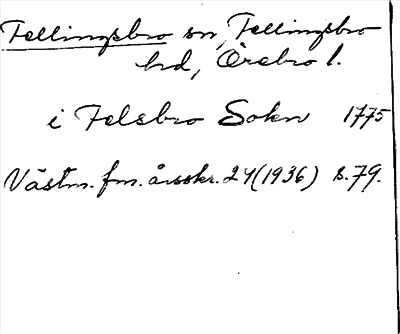 Fellingsbro sn, Fellingsbro
hd, Örebro l.
i Felsbro Sokn 1775
Västm. fm. årsskr. 24 (1936) s. 79.